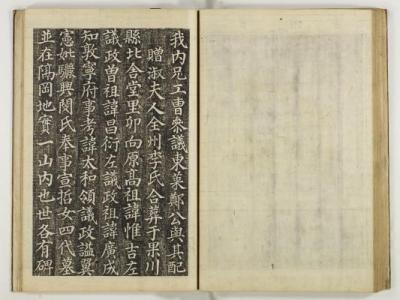 我內兄工曹參議東萊鄭公與其配
贈淑夫人全州李氏合葬于果川
縣北舍堂里卯向原高祖諱惟吉左
議政曾祖諱昌衍左議政祖諱廣成
知敦寧府事考諱太和領議政諡翼
憲妣驪興閔氏奉事宣哲女四代墓
並在隔岡地實一山內也世各有碑